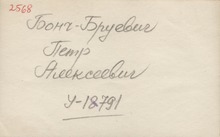 2568
Бонч-Бруевич
Петр
Алексеевич
У-18791